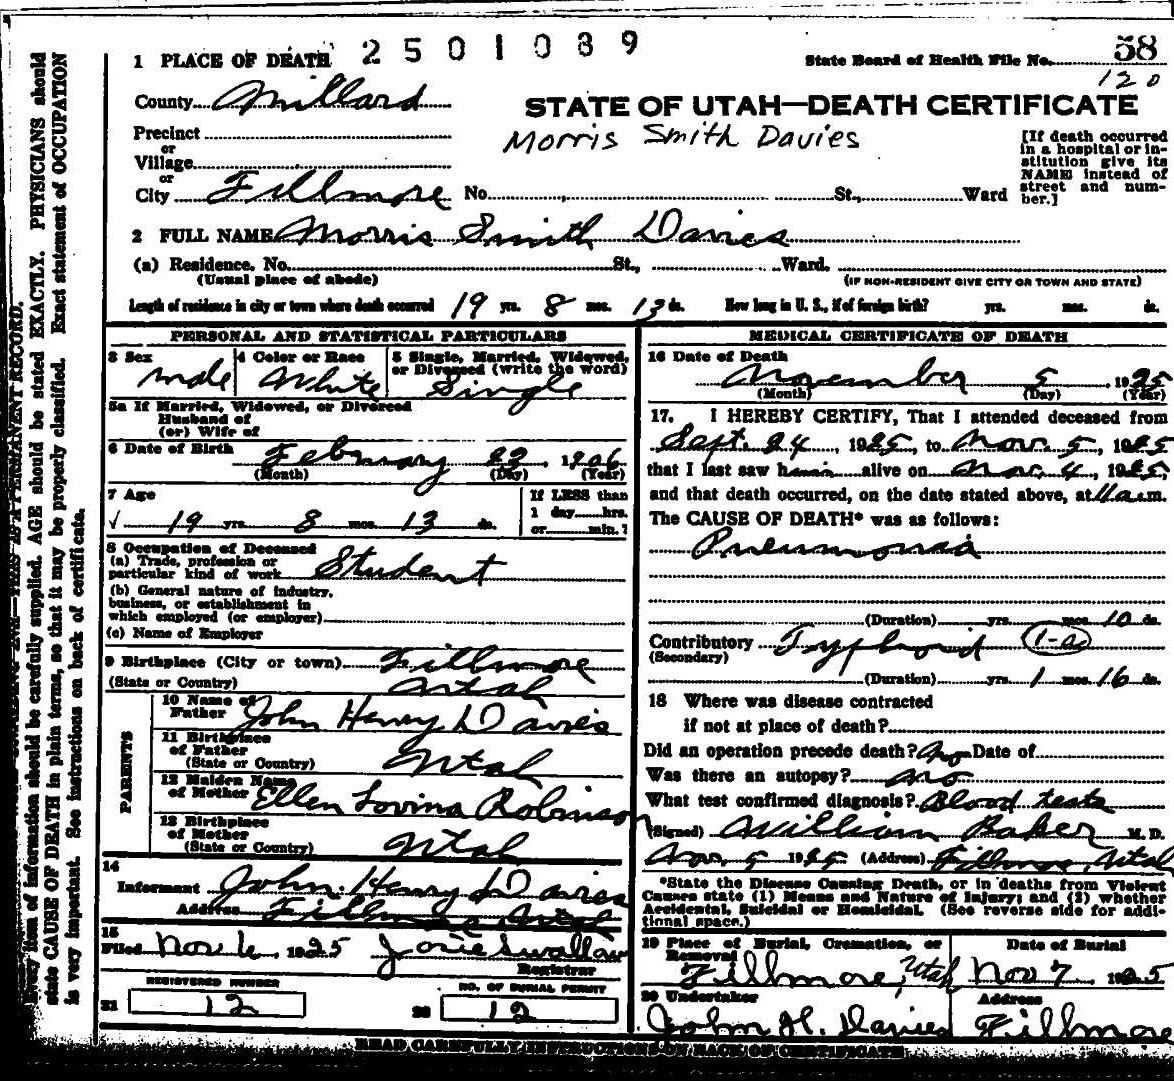 2501089
State Board of Health File No. 58
120
1 PLACE OF DEATH
County Millard
STATE OF UTAH—DEATH CERTIFICATE
Morris Smith Davies
Precinct
or
Village
or
City Fillmore No. St., Ward
[If death occurred
in a hospital or in-
stitution give its
NAME instead of
street and num-
ber.]
2 FULL NAME Morris Smith Davies
(a) Residence. No. St., Ward.
(Usual place of abode) (IF NON-RESIDENT GIVE CITY OR TOWN AND STATE)
Length of residence in city or town where death occurred 19 yrs. 8 mos. 13 ds. How long in U. S., if of foreign birth? yrs. mos. ds.
PERSONAL AND STATISTICAL PARTICULARS
3 Sex male
4 Color or Race White
5 Single, Married, Widowed,
or Divorced (write the word)
Single
5a If Married, Widowed, or Divorced
Husband of
(or) Wife of
6 Date of Birth February 22, 1906
(Month) (Day) (Year)
7 Age
√ 19 yrs. 8 mos. 13 ds.
If LESS than
1 day hrs.
or min.?
8 Occupation of Deceased
(a) Trade, profession or
particular kind of work Student
(b) General nature of industry,
business, or establishment in
which employed (or employer)
(c) Name of Employer
9 Birthplace (City or town) Fillmore
(State or Country) Utah
PARENTS
10 Name of
Father John Henry Davies
11 Birthplace
of Father
(State or Country) Utah
12 Maiden Name
of Mother Ellen Lovina Robinson
13 Birthplace
of Mother
(State or Country) Utah
14
Informant John Henry Davies
Address Fillmore Utah
15
Filed Nov 6 1925 Josie Swallow
Registrar
REGISTERED NUMBER
21 12
NO. OF BURIAL PERMIT
22 12
MEDICAL CERTIFICATE OF DEATH
16 Date of Death
November 5, 1925
(Month) (Day) (Year)
17. I HEREBY CERTIFY, That I attended deceased from
Sept. 24 1925, to Nov. 5, 1925
that I last saw him alive on Nov. 4, 1925,
and that death occurred, on the date stated above, at 11 a.m.
The CAUSE OF DEATH* was as follows:
Pneumonia
(Duration) yrs. mos. 10 ds.
Contributory Typhoid 1-a
(Secondary)
(Duration) yrs. 1 mos. 16 ds.
18 Where was disease contracted
if not at place of death?
Did an operation precede death? No Date of
Was there an autopsy? No
What test confirmed diagnosis? Blood tests
(Signed) William Baker M. D.
Nov. 5 1925 (Address) Fillmore, Utah
*State the Disease Causing Death, or in deaths from Violent
Causes state (1) Means and Nature of Injury; and (2) whether
Accidental, Suicidal or Homicidal. (See reverse side for addi-
tional space.)
19 Place of Burial, Cremation, or
Removal
Fillmore, Utah
Date of Burial
Nov 7 1925
20 Undertaker
John H. Davies
Address
Fillmore
READ CAREFULLY INSTRUCTIONS ON BACK OF CERTIFICATE
Every item of information should be carefully supplied. AGE should be stated EXACTLY. PHYSICIANS should
state CAUSE OF DEATH in plain terms, so that it may be properly classified. Exact statement of OCCUPATION
is very important. See instructions on back of certificate.